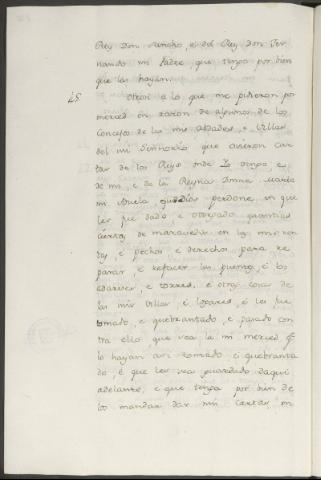 Rey Don Sancho, e del Rey Don Fer
nando mi Padre, que tenga por bien
que las hayan.
25 Otrosi a lo que me pidieron por
merced en razon de algunos de los
Concejos de las mis Cibdades, e Villas
del mi Sennorio que avieron car
tas de los Reys onde Yo vengo e
de mi, e de la Reyna Donna Maria
mi Avuela, que Dios perdone, en que
les fue dado e otorgado quantias
ciertas de maravedis en las mis ren
tas, e pechos e derechos para re
parar, e refacer las puentes, e los
e torres, e otras cosas de
las mis Villas, e Logares, e les fue
tomado, e quebrantado, e pasado con
tra ello que sea la mi merced q
lo hayan asi tomado e quebranta
do, e que les sea guardado daqui
adelante, e que tenga por bien de
les mandar dar mis Cartas, en